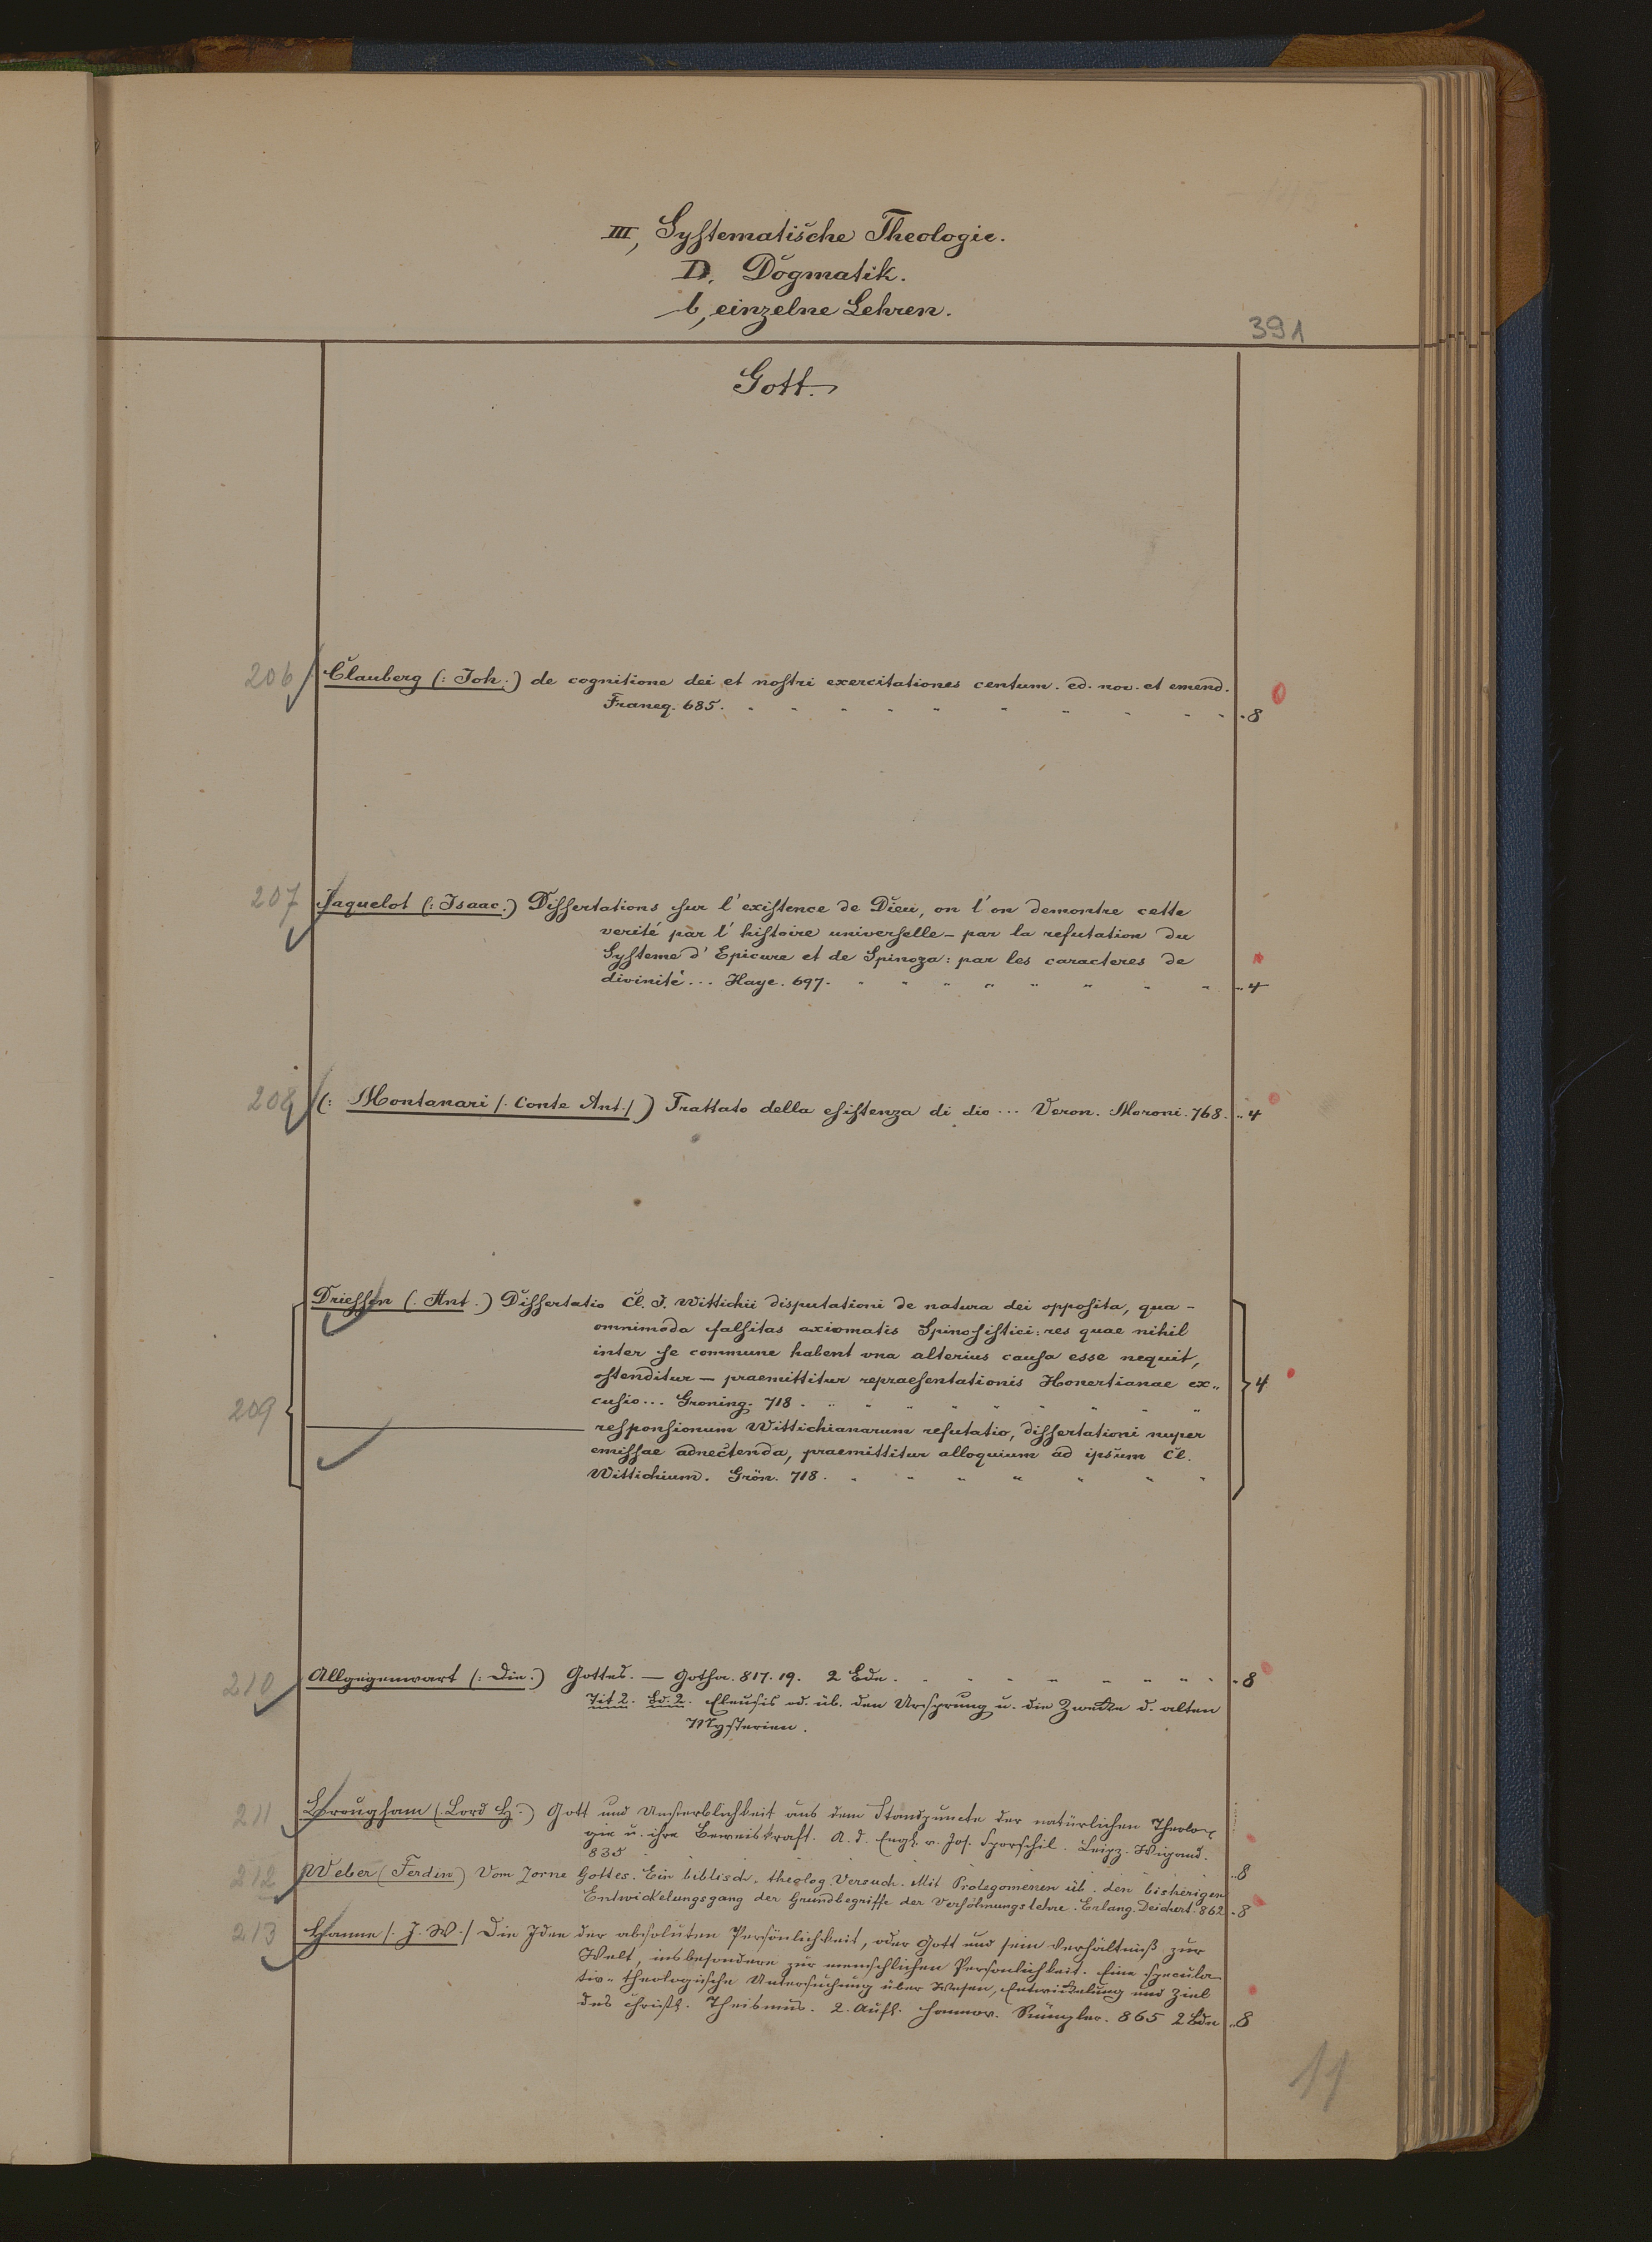 III, Systematische Theologie.
D. Dogmatik.
b, einzelne Lehren.
391
Gott.
206 Clauberg (: Joh.) de cognitione dei et nostri exercitationes centum. ed. nov. et emend.
Franeq. 685. 8
207 Jaquelot (: Isaac.) Dissertations sur l'existence de Dieu, on l'on demontre cette
verité par l'histoire universelle - par la refutation du
Systeme d'Epicure et de Spinoza: par les caracteres de
divinité... Haye. 697. 4
208 (: Montanari /. Conte Ant./) Trattato della esistenza di dio ... Veron. Moroni. 768. 4
Driessen (. Ant.) Dissertatio Cl. J. Wittichii disputationi de natura dei opposita, qua-
omnimoda falsitas axiomatis Spinosistici: res quae nihil
inter se commune habent vna alterius causa esse nequit,
ostenditur — praemittitur repraesentationis Honertianae ex-
cusio... Groning. 718. 4
209
responsionum Wittichianarum refutatio, dissertationi nuper
emissae adnectenda, praemittitur alloquium ad ipsum Cl.
Wittichium. Grön. 718.
210 Allgegenwart (: die.) Gottes. — Gotha. 817. 19. 2 Bde. 8
Tit 2. Bd. 2. Eleusis od. üb. den Ursprung u. die Zwecke d. alten
Mysterien.
211 Brougham (Lord H.) Gott und Unsterblichkeit aus dem Standpuncte der natürlichen Theolo-
gie u. ihre Beweiskraft. A. d. Engl. v. Jos. Sporschil. Leipz. Wigand.
835 8
212 Weber (Ferdin) Vom Zorne Gottes. Ein biblisch-theolog. Versuch. Mit Prolegomenen üb. den bisherigen
Entwickelungsgang der Grundbegriffe der Versöhnungslehre. Erlang. Deichert. 862 8
213 Hanne /. J. W./ Die Idee der absoluten Persönlichkeit, oder Gott und sein Verhältniß zur
Welt, insbesondere zur menschlichen Persönlichkeit. Eine specula-
tiv-theologische Untersuchung über Wesen, Entwickelung und Ziel
des christl. Theismus. 2. Aufl. Hannov. Rümpler. 865 2 Bde 8
11